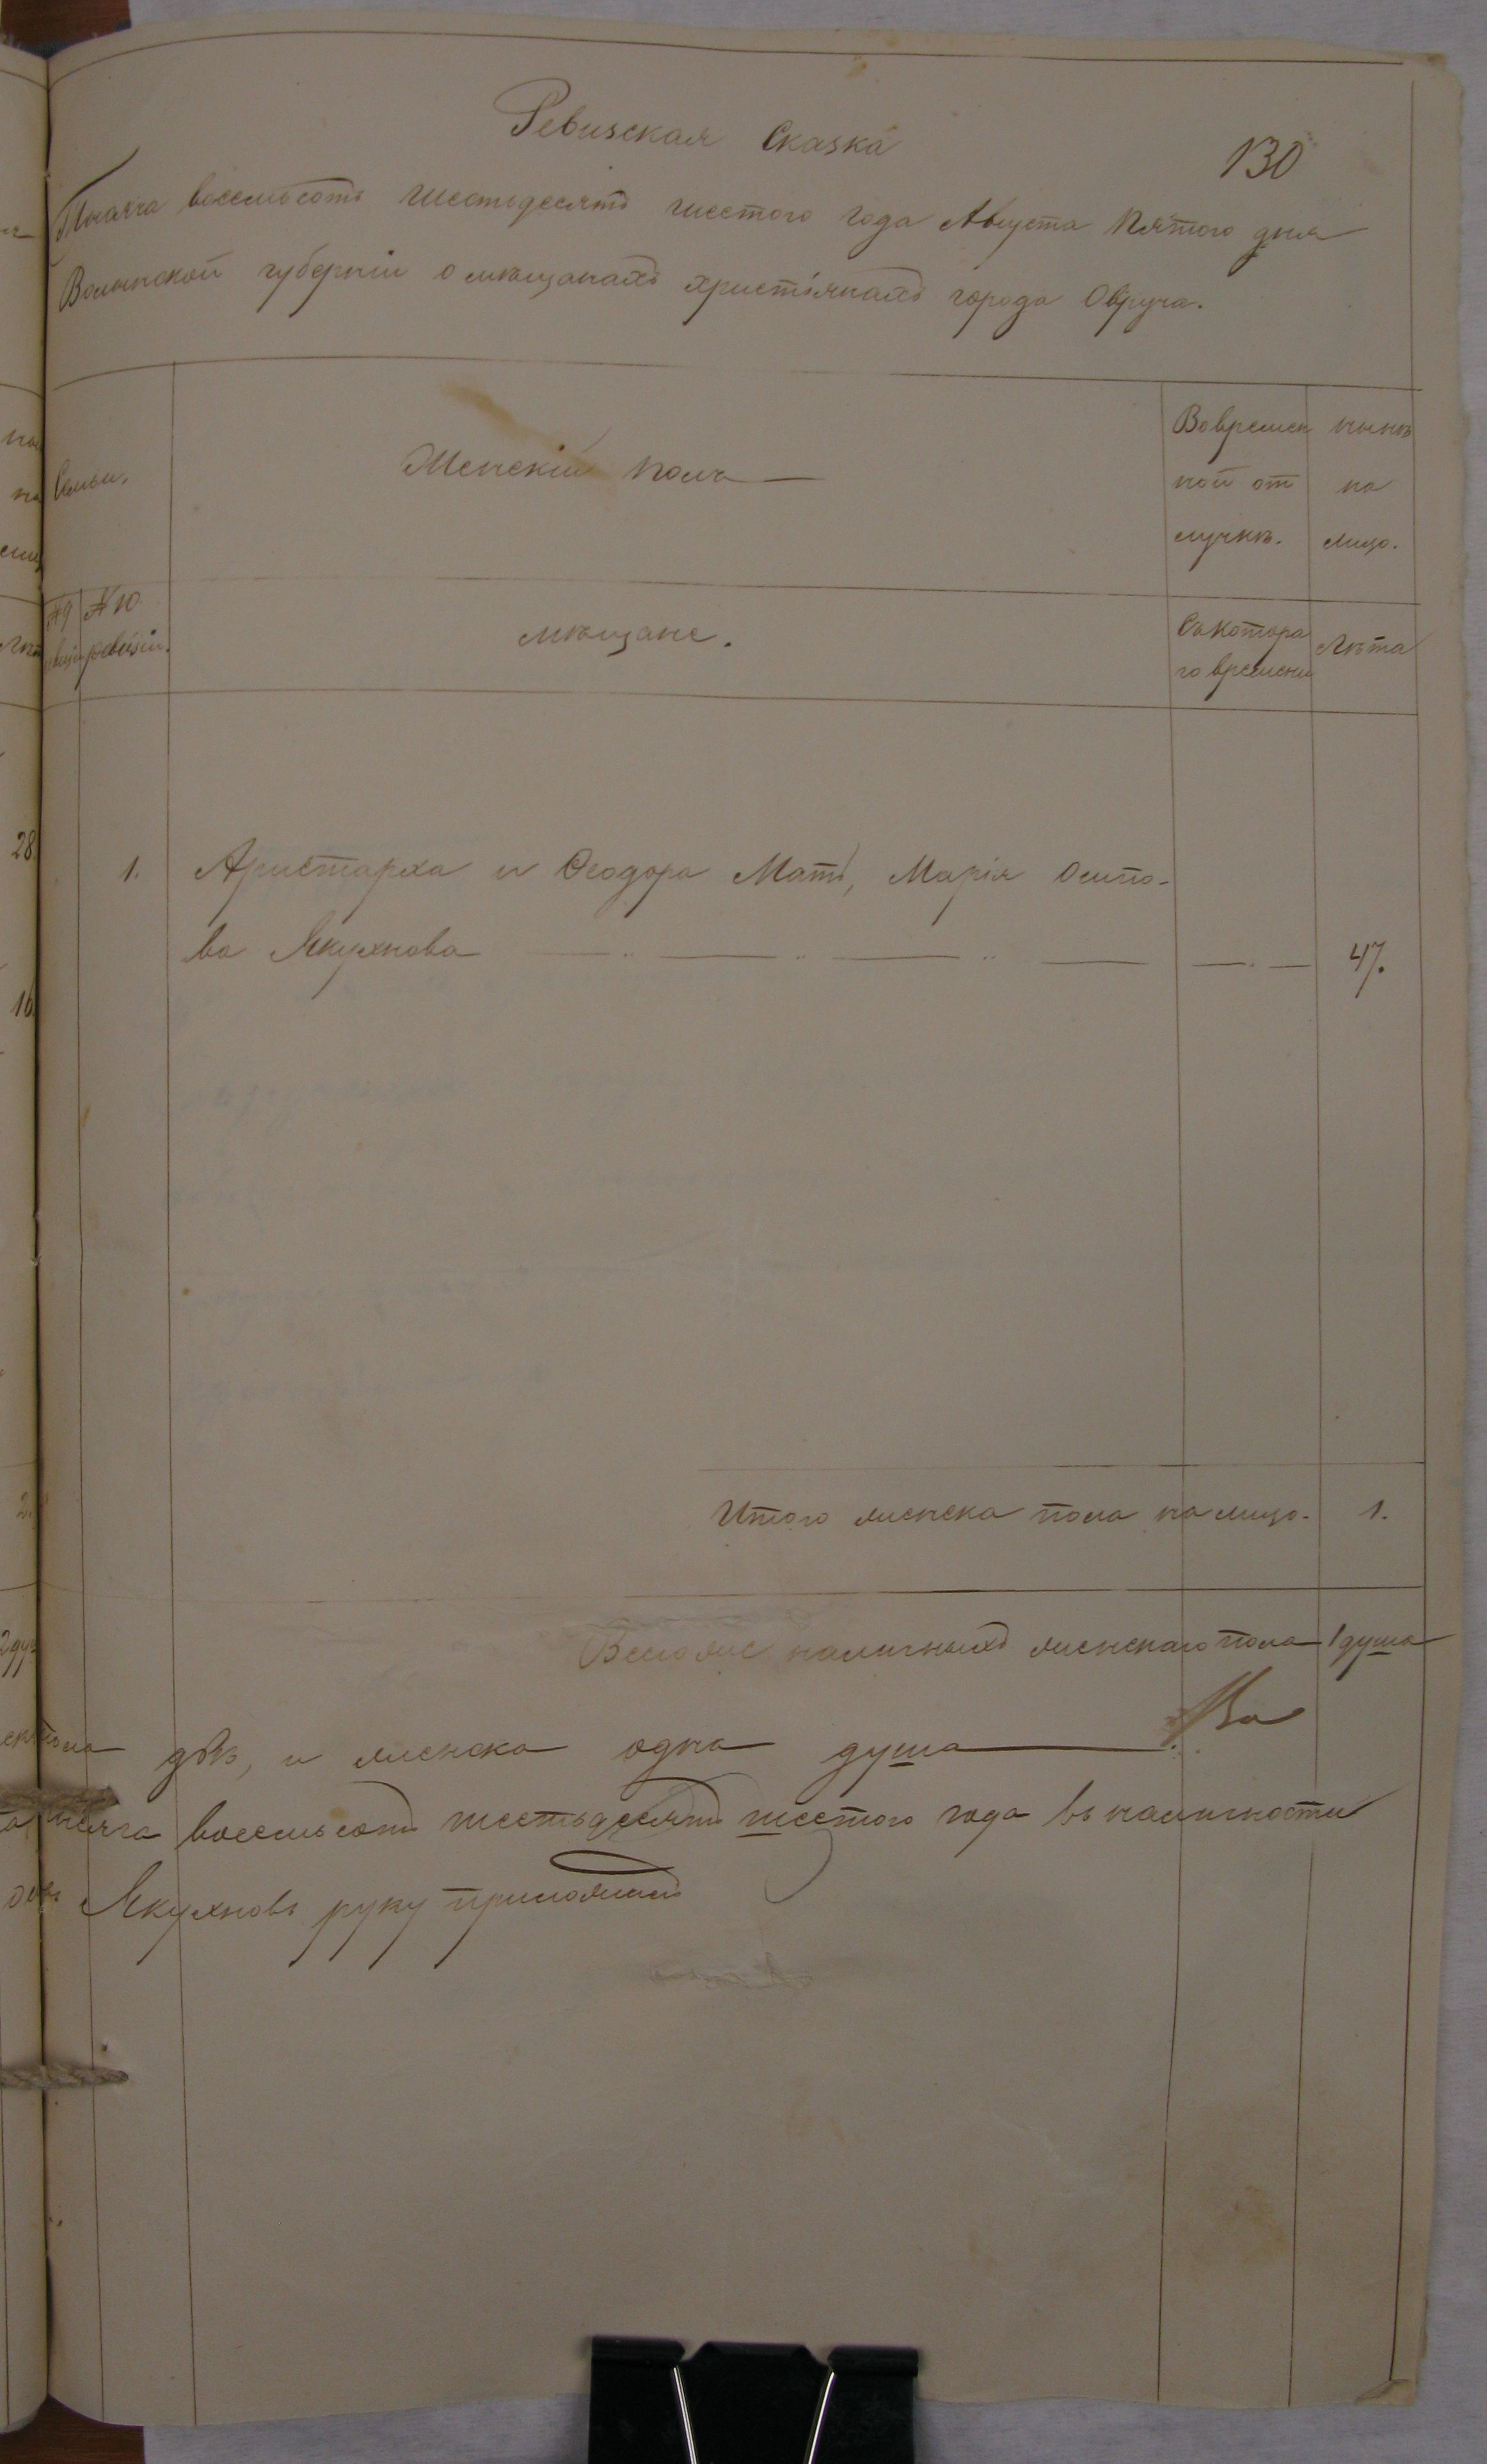 Ревизская Сказка
130
Тысяча восемьсотъ шестьдесятъ шестого года Августа пятого дня
Волынской губерніи о мѣщанахъ христіянахъ города Овруча.
Семьи.
Женскій полъ
Во времен
ной от
лучкѣ.
нынѣ
на
лицо.
№9 №10
ревизіи.
мѣщане.
Съ котора
го времени
Лѣта
28
1. Аристарха и Ѳеодора Мать, Марія Осипо-
ва Якухнова 47.
16
Итого женска пола на лицо. 1.
Всего же наличныхъ женскаго пола 1 душа
двѣ, и женска одна душа
восемьсотъ шестьдесятъ шестого года въ наличности
Якухновъ руку приложилъ